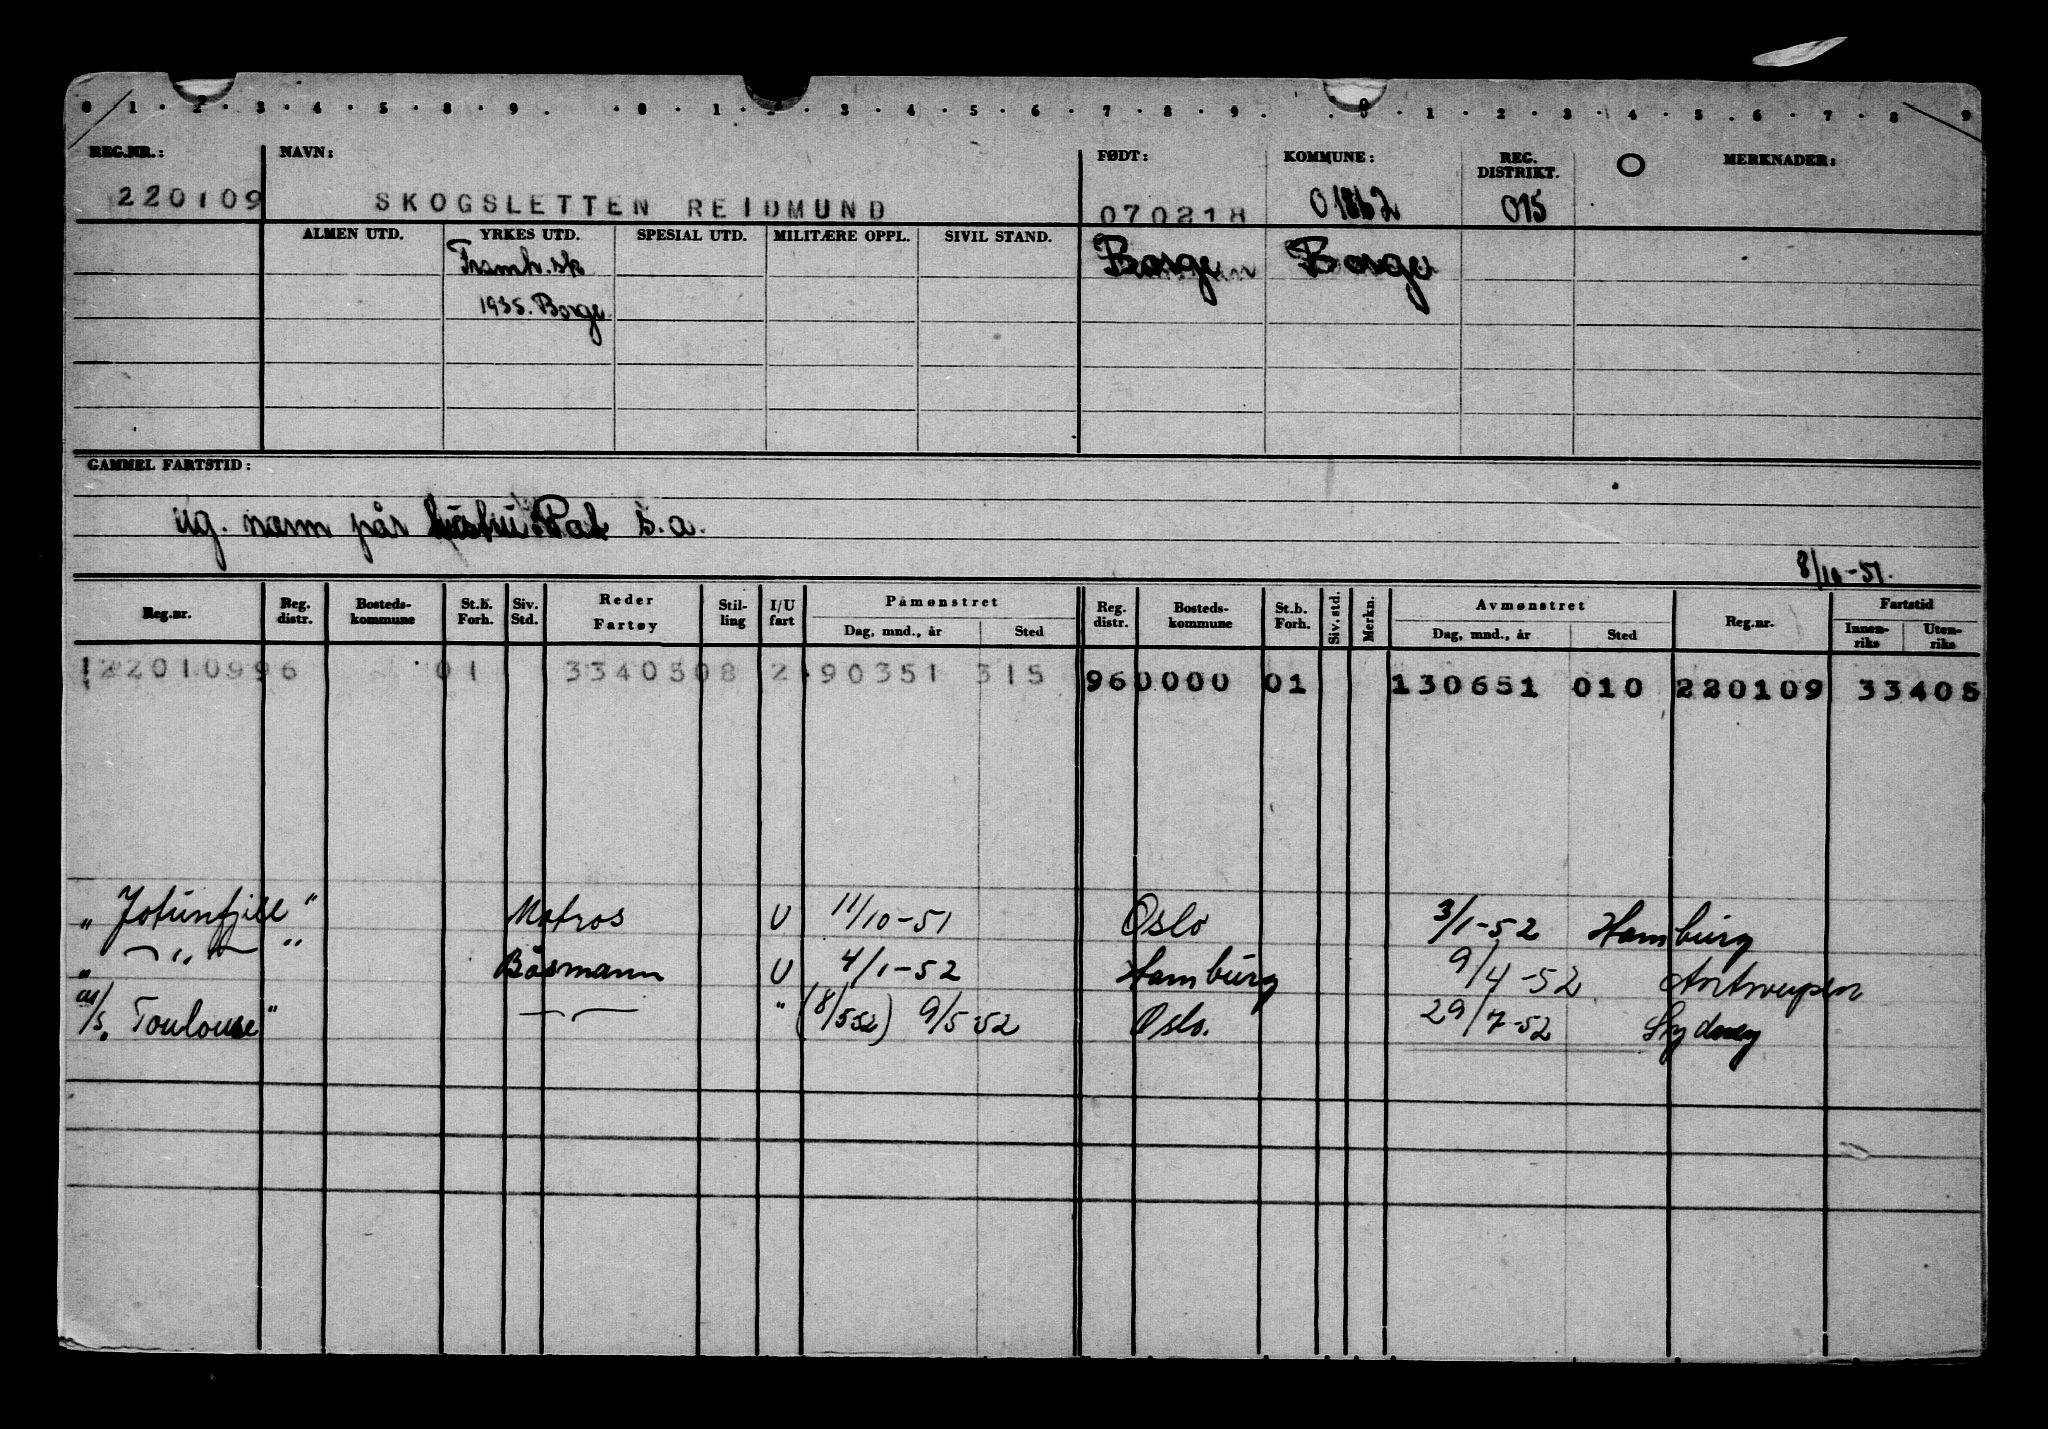 0 1 2 3 4 5 8 9 0 1 2 3 4 5 6 7 8 9 0 1 2 3 4 5 6 7 8 9
REG.NR.: NAVN: FØDT: KOMMUNE: REG. DISTRIKT. O MERKNADER:
220109 SKOGSLETTEN REIDMUND 070218 01862 015
ALMEN UTD. YRKES UTD. SPESIAL UTD. MILITÆRE OPPL. SIVIL STAND.
Framh.sk Borge Borge
1935. Borge
GAMMEL FARTSTID:
ug. næm pår s.a.
8/10-51.
Reg.nr. Reg. distr. Bosteds-kommune St.b. Forh. Siv. Std. Reder Fartøy Stil-ling I/U fart Påmønstret Dag, mnd., år Sted Reg. distr. Bosteds-kommune St.b. Forh. Siv. std. Merkn. Avmønstret Dag, mnd., år Sted Reg.nr. Fartstid Innen-riks Uten-riks
22010996 01 3340508 2 90351 315 960000 01 130651 010 220109 33405
"Jotunfjell" Matros U 11/10-51 Oslo 3/1-52 Hamburg
" — " — " Båsmann U 4/1-52 Hamburg 9/4-52 Antwerpen
m/s. Toulouse" — — " (8/5 52) 9/5 52 Oslo. 29/7-52 Sydney